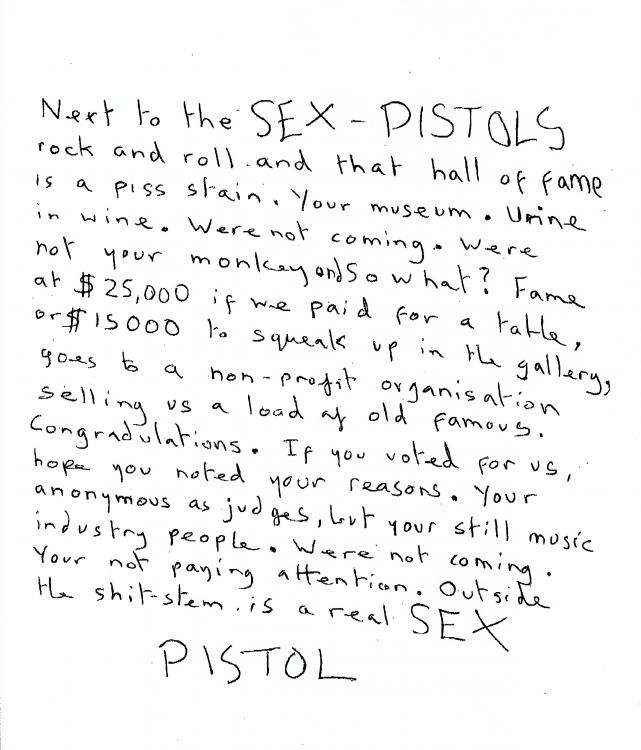 Next to the SEX-PISTOLS
rock and roll.and that hall of fame
is a piss stain. Your museum. Urine
in wine. Were not coming. Were
not your monkey and so what? Fame
at $25,000 if we paid for a table,
or $15000 to squeak up in the gallery,
goes to a non-profit organisation
selling us a load of old famous.
Congradulations. If you voted for us,
hope you noted your reasons. Your
anonymous as judges, but your still music
industry people. Were not coming.
Your not paying attention. Outside
the shit-stem.is a real SEX
PISTOL